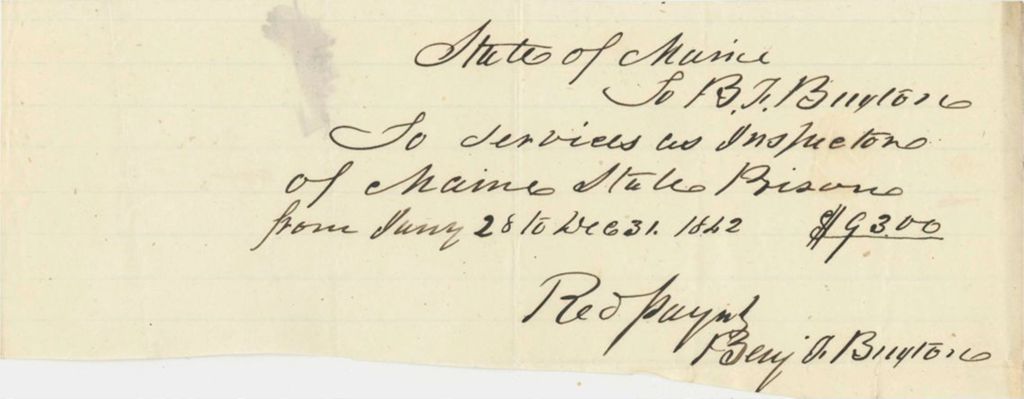 State of Maine
To B. F. Buxton
To services as Inspector
of Maine State Prison
from Jany 28 to Dec 31. 1862 $93.00
Recd paymt
Benj F. Buxton